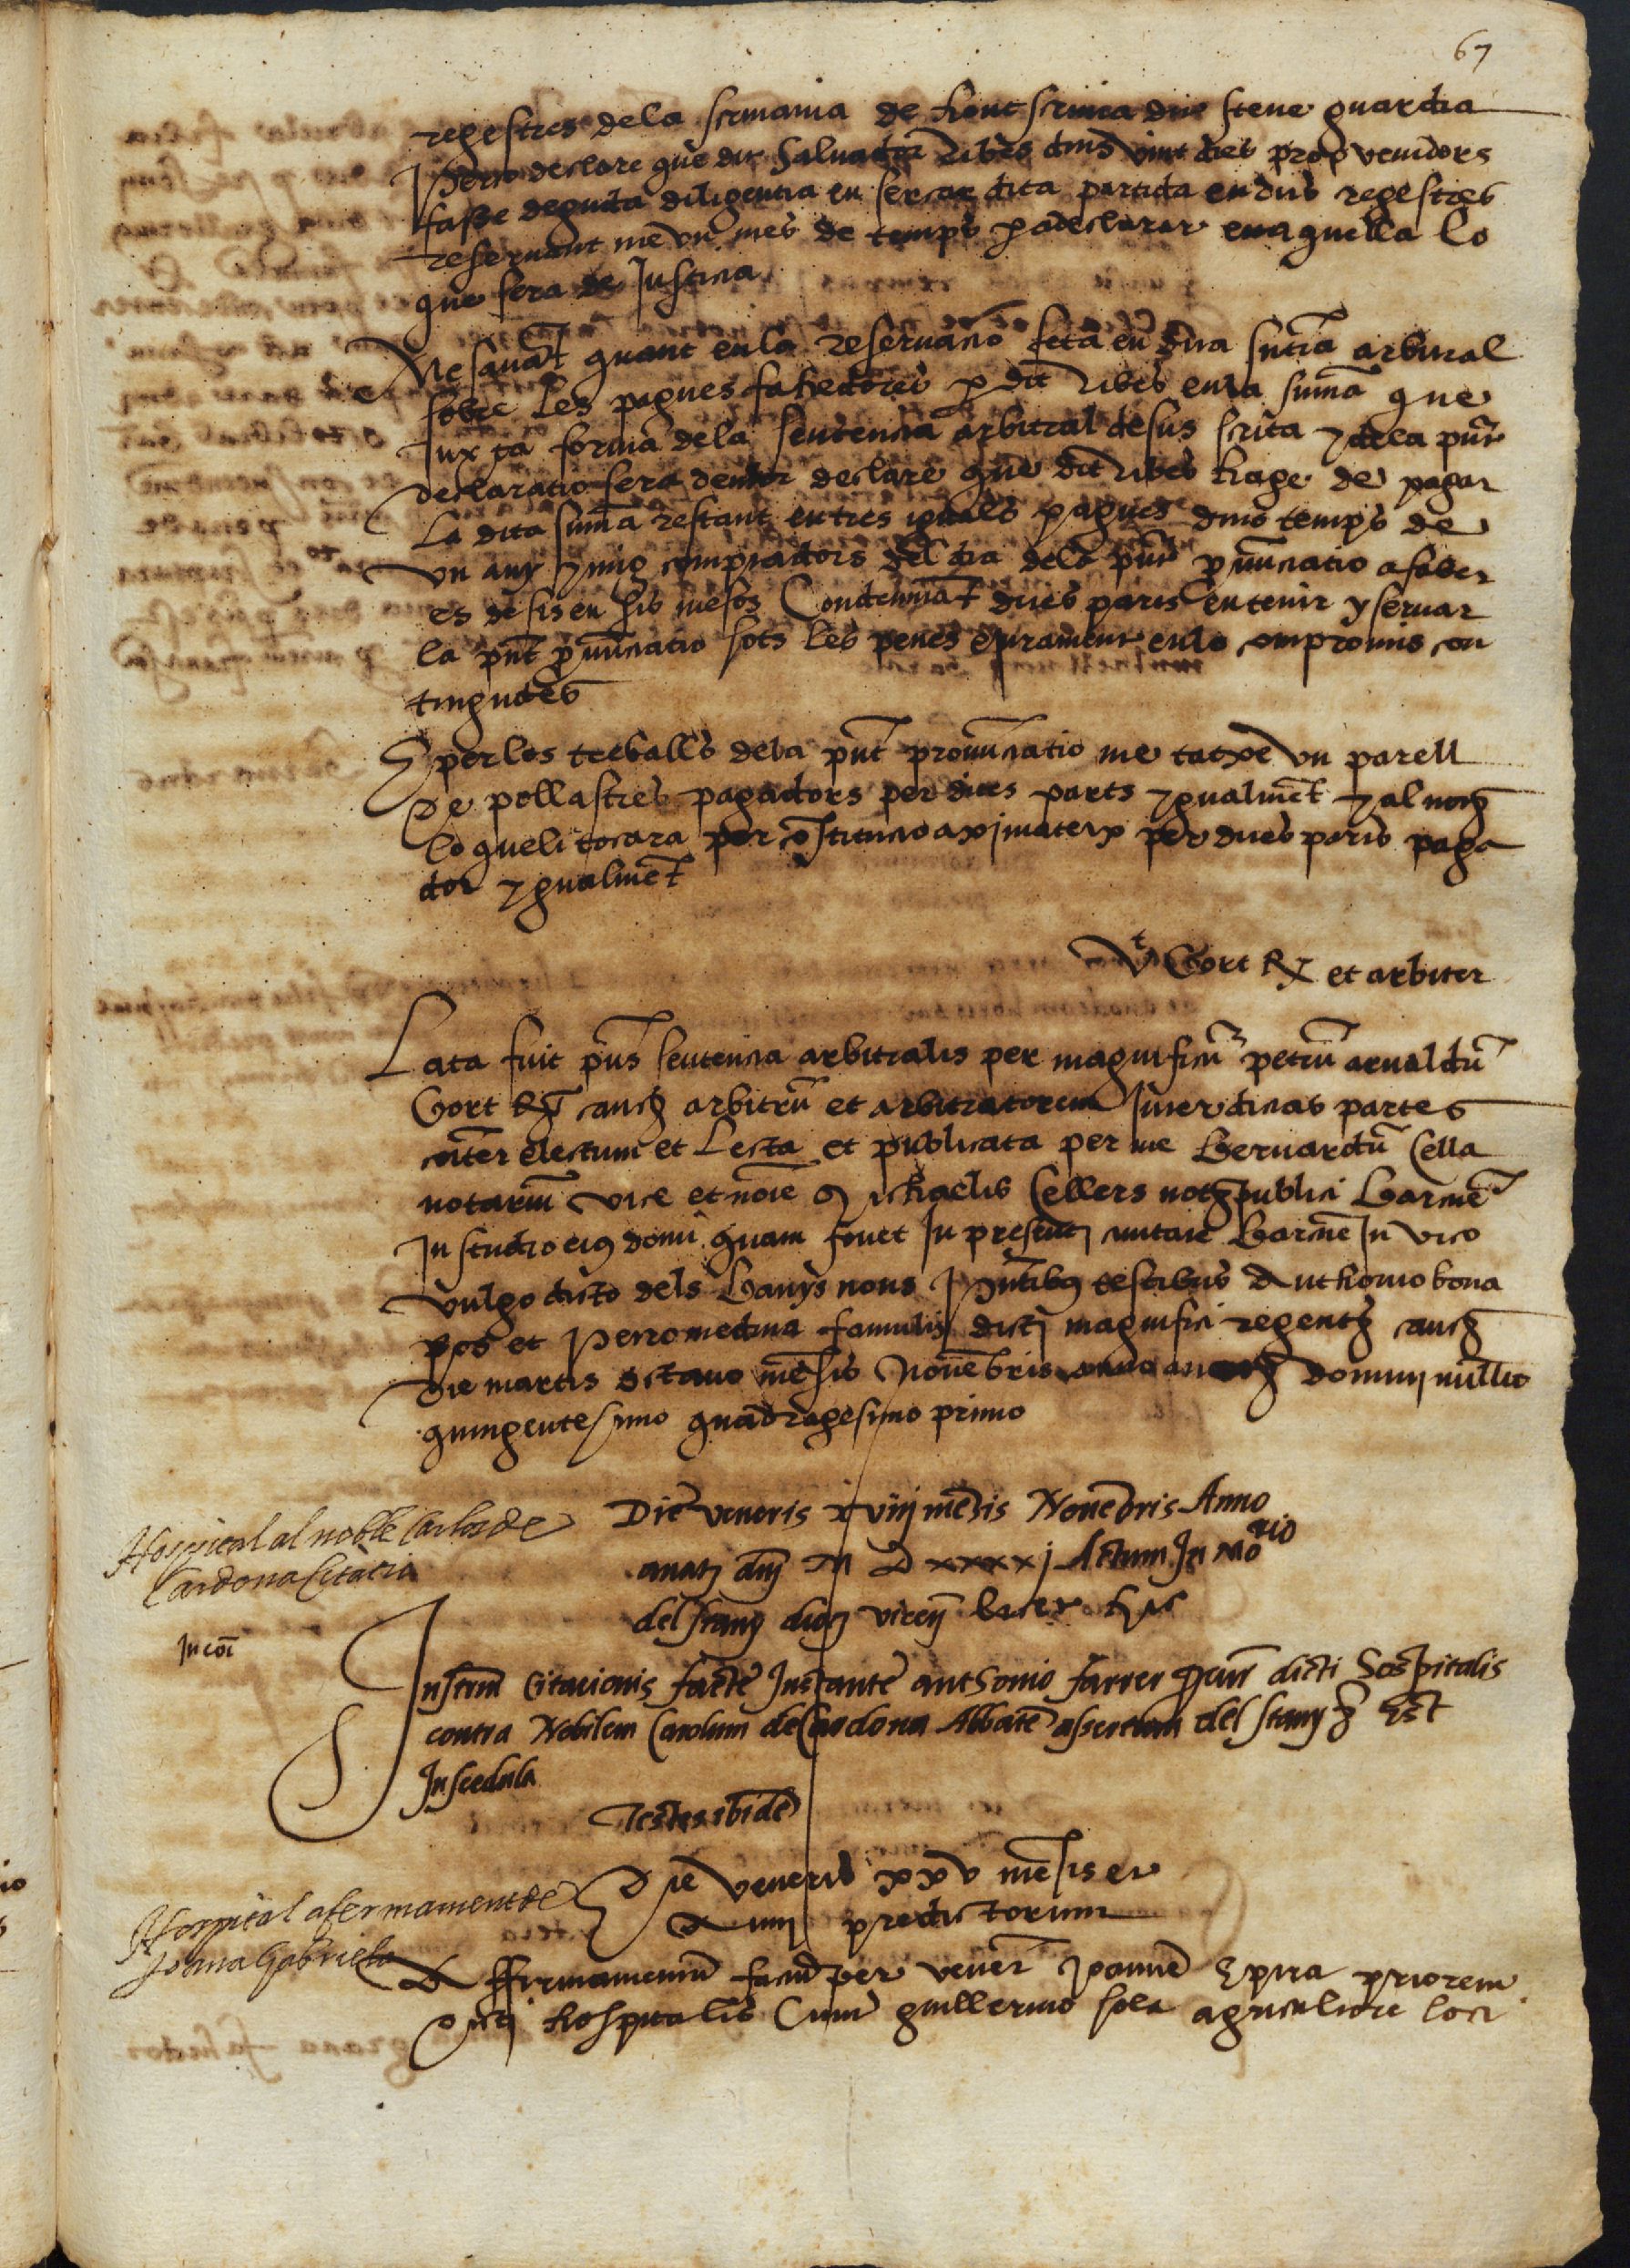 67
regestres dela scrivania de hont scrivia dit steve guardia
Perço declare que dit Salvador Ribes dins vint dies prop venidors
fasse deguda diligentia en sercar dita partida en dits regestres
reservant me un mes de temps p adeclarar en aquella lo
que sera de Justicia
Mes avāt quant en la reservatio feta en dita sn̄tia arbitral
sobre les pagues fahedores p dit ribes en la suma que
Juxta forma dela sentencia arbitral desus scrita y dela pn̄t
declaratio sera deutor declare que dit ribes hage de pagar
la dita suma restant en tres iguals pagues dins temps de
un any y mig comptadors del dia dela pn̄t pn̄unciatio asaber
es de sis en sis mesos Condemnāt dites parts en tenir y servar
la pn̄t pn̄unciatio sots les penes e jurament en lo compromis con
tingudes
E per los treballs dela pn̄t pronūnciatio me tatxe un parell
de pollastres pagadors per dites parts ygualmēt y al not
lo que li tocara per cōstitucio aximateix per dites parts paga
dor ygualmēt
Vt Gort Rx et arbiter
Lata fuit pn̄s sentencia arbitralis per magnificū petrū arnaldū
Gort Rx canc arbitrū et arbitratorem inter dictas partes
cōiter electum et Lecta et publicata per me Bernardū Sella
notariū vice et noīe Michaelis Cellers not publici Barcn̄e
In studio eius domi quam fovet In presenti civitate Barcn̄e In vico
vulgo dicto dels Banys nous pn̄tibus testibus Anthonio bona
pos et Petro medina famulis dicti magnifici regentis canc
Die martis octavo mēsis Novēbris anno a nat Domini millo
quingentesimo quadragesimo primo
Hospital al noble Carlos de
Cardona Citatio
Die veneris xviij mēsis Novēbris Anno
anat dn̄j M D xxxxj Actum In Morio
del stany dioc vicen̄
In cōi
Instrm̄ Citacionis facte Instante anthonio farrer dicti Hospitalis
contra Nobilem Carolum de Cardona Abbatē assertum del stany Est
In scedula
Testes ibidē
Hospital afermament de
Joana Gabriela
Die veneris xxv mēsis et
Anni predictorum
Affirmamentū factū per vener Joannē Spira priorem
dicti hospitalis Cum guillermo sola agricultore loci